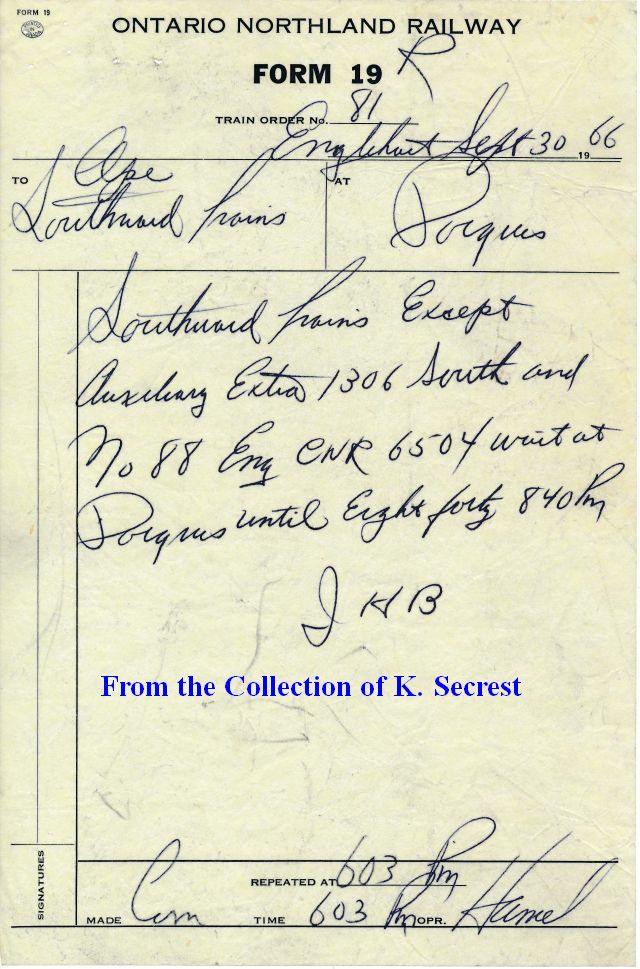 FORM 19
ONTARIO NORTHLAND RAILWAY
FORM 19 R
TRAIN ORDER No. 81
Englehart Sept 30 1966
TO Ope AT
Southward Trains Porquis
Southward Trains Except
Auxiliary Extra 1306 South and
No 88 Eng CNR 6504 wait at
Porquis until Eight forty 840 Pm
J H B
From the Collection of K. Secrest
REPEATED AT 603 Pm
SIGNATURES
MADE Com TIME 603 Pm OPR. Hamel